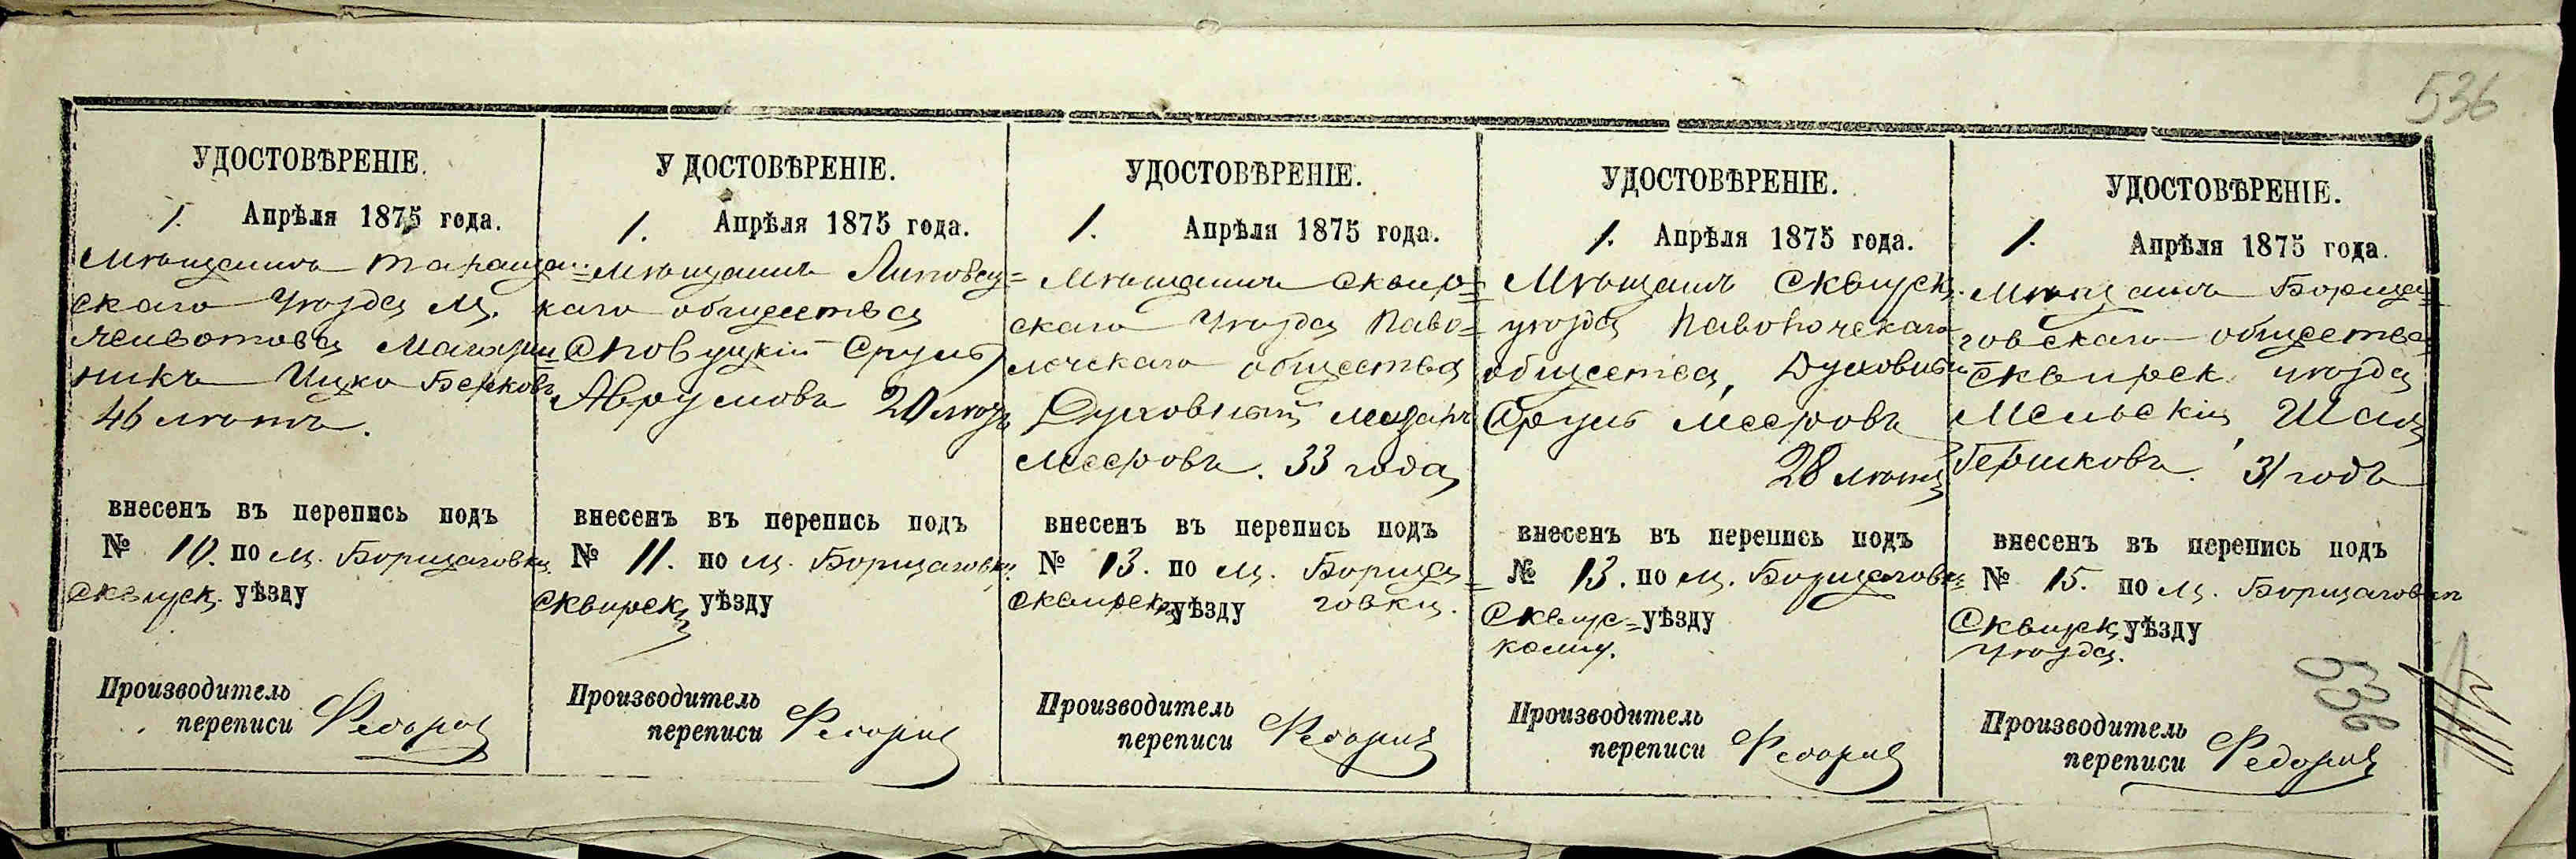 536
УДОСТОВѢРЕНІЕ.
1. Апрѣля 1875 года.
Мѣщанинъ Таращан-
скаго Уѣзда М.
Магазин
никъ Ицко Берковъ
46 лѣтъ.
внесенъ въ перепись подъ
№ 10. по м. Борщаговки
Сквирск. уѣзду
Производитель
переписи
УДОСТОВѢРЕНІЕ.
1. Апрѣля 1875 года.
Мѣщанинъ Липовец=
каго общества
Сруль
Аврумовъ 20 лѣтъ
внесенъ въ перепись подъ
№ 11. по м. Борщаговки.
Сквирск уѣзду
Производитель
переписи
УДОСТОВѢРЕНІЕ.
1. Апрѣля 1875 года.
Мѣщанинъ Сквир=
скаго Уѣзда Паво=
лочскаго общества
Духовный
Мееровъ. 33 года
внесенъ въ перепись подъ
№ 13. по м. Борща=
Сквирск уѣзду говки.
Производитель
переписи
УДОСТОВѢРЕНІЕ.
1. Апрѣля 1875 года.
Мѣщанъ Сквирск.
уѣзда Паволочскаго
общества, Духовный
Сруль Мееровъ
28 лѣтъ
внесенъ въ перепись подъ
№ 13. по м. Борщагов=
Сквир= уѣзду
кому.
Производитель
переписи
УДОСТОВѢРЕНІЕ.
1. Апрѣля 1875 года.
Мѣщанинъ Борща=
говскаго общества
Сквирск. уѣзда
Шая
Гершковъ. 31 годъ
внесенъ въ перепись подъ
№ 15. по м. Борщаговки
Сквирск уѣзду
Уѣзда.
Производитель
переписи
536